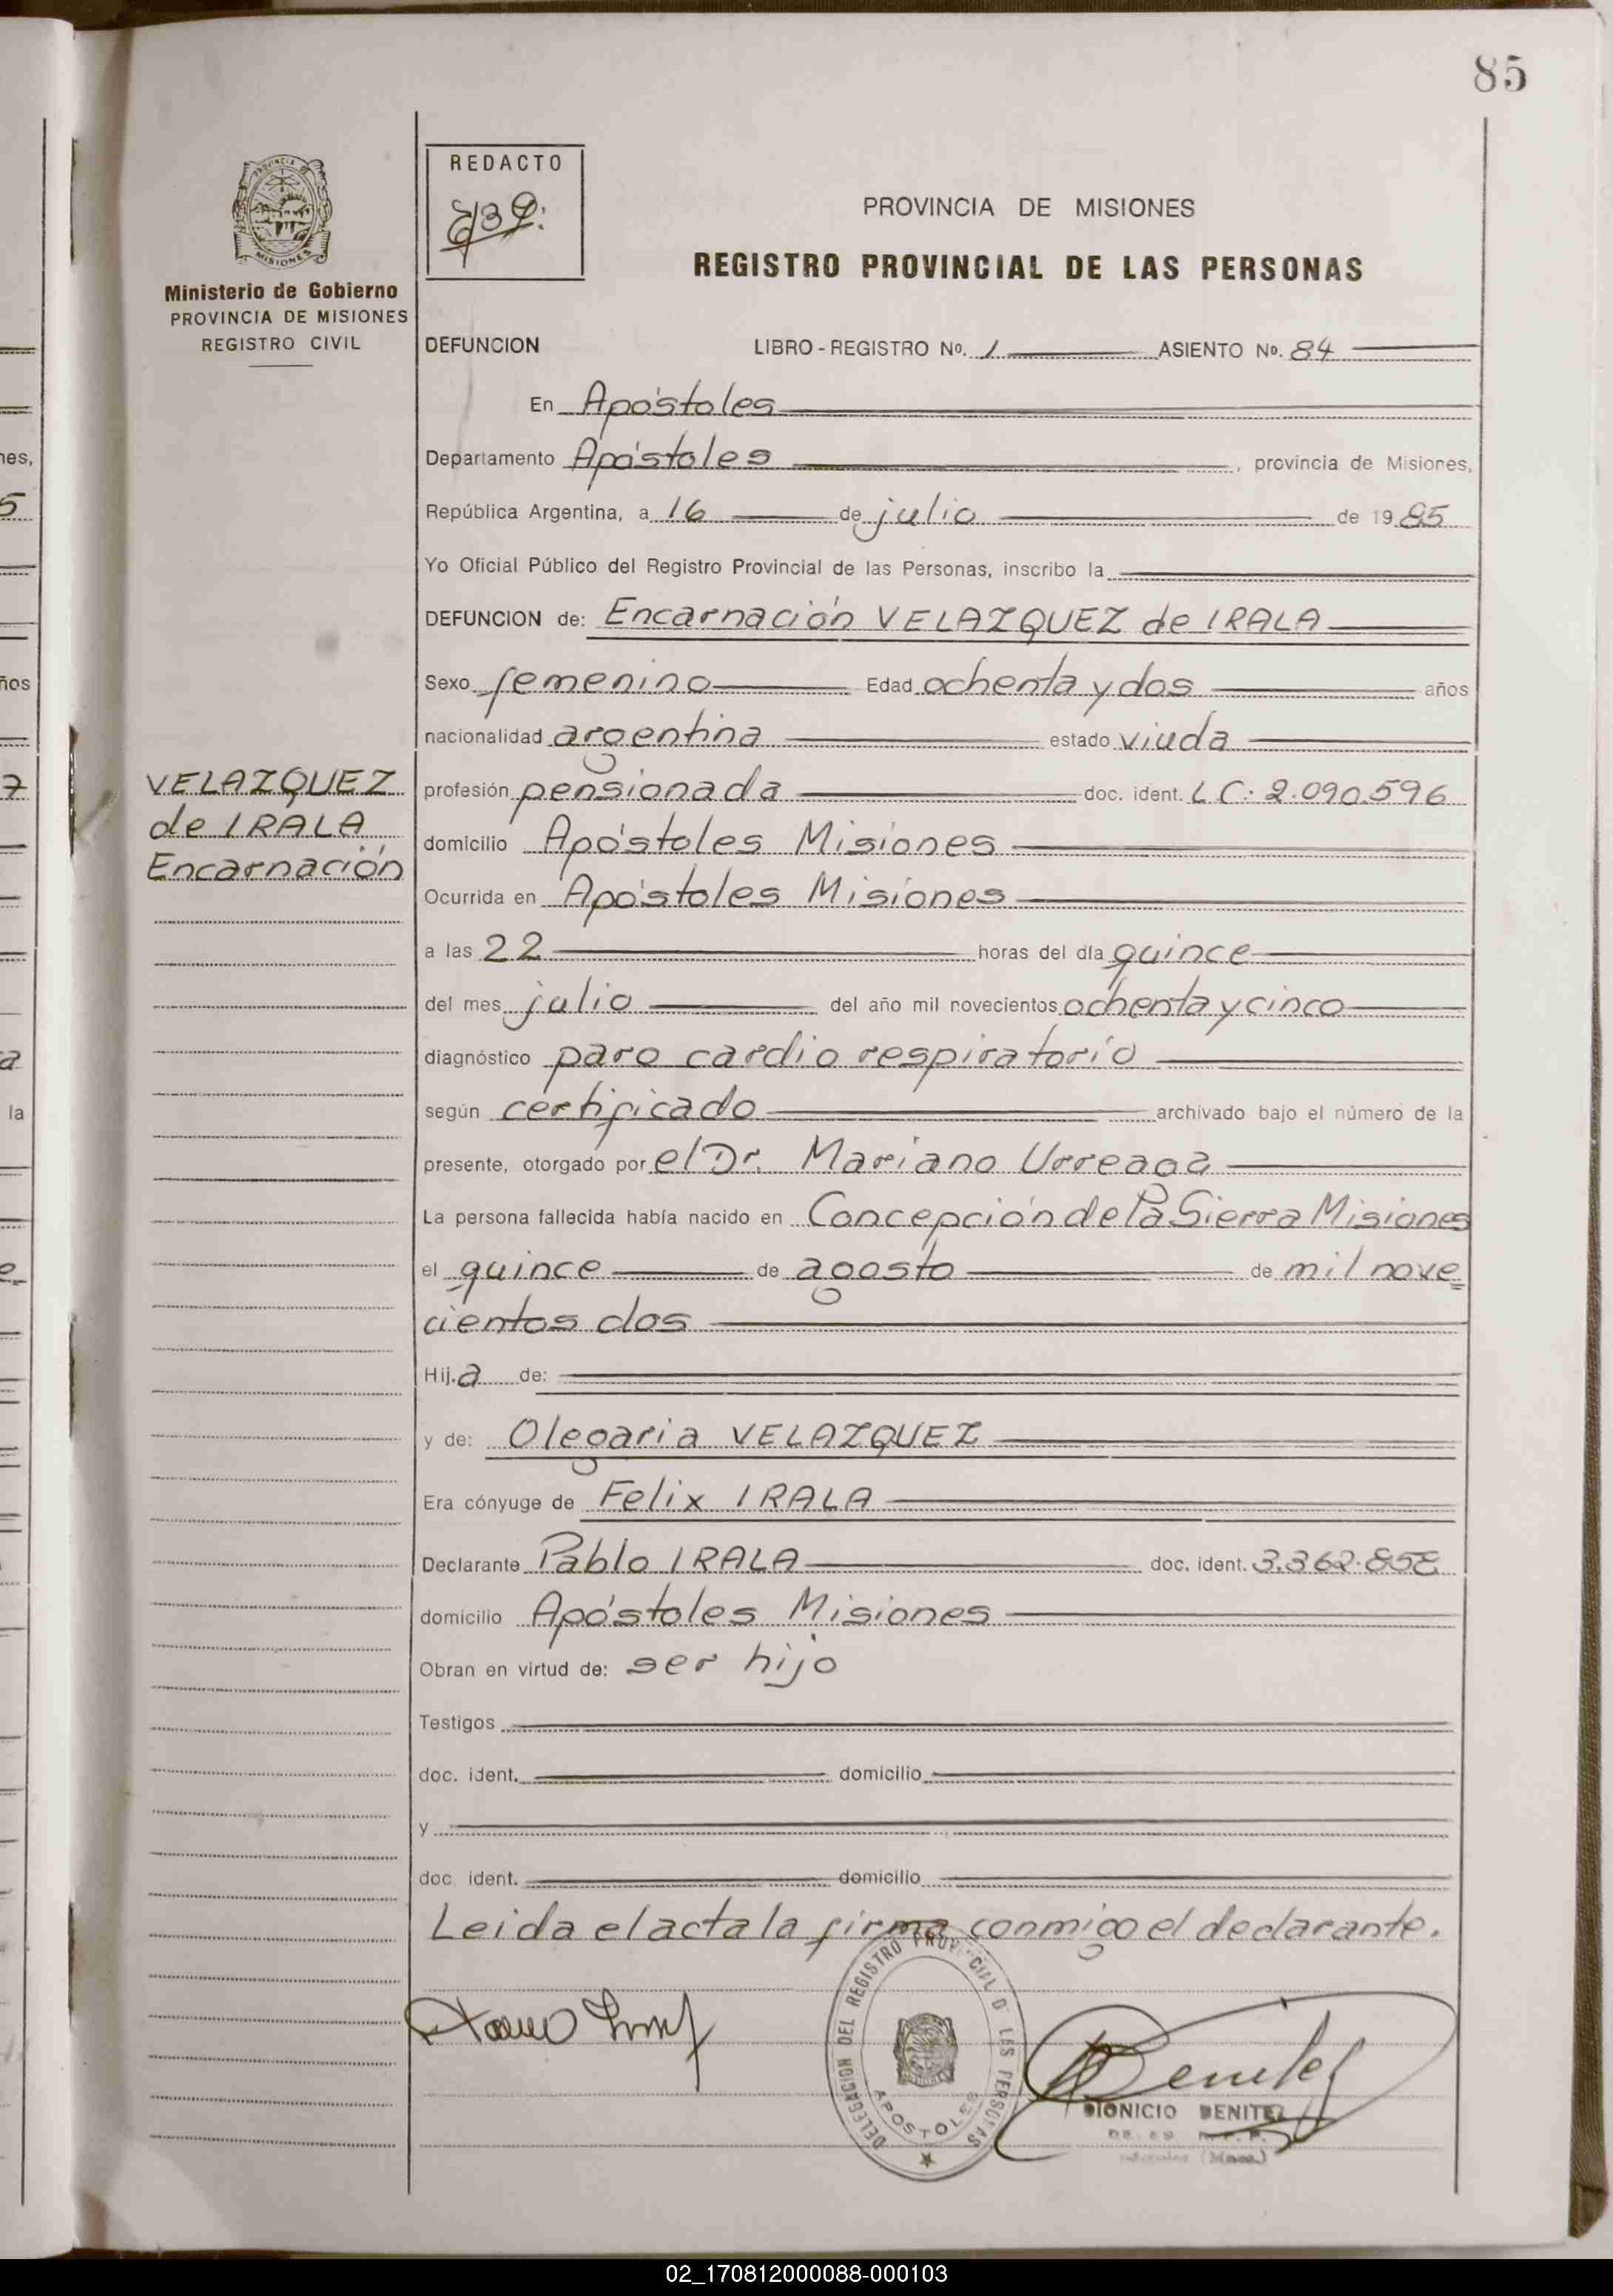 85
PROVINCIA
MISIONES
Ministerio de Gobierno
PROVINCIA DE MISIONES
REGISTRO CIVIL
REDACTO
PROVINCIA DE MISIONES
REGISTRO PROVINCIAL DE LAS PERSONAS
DEFUNCION LIBRO - REGISTRO No. 1 ASIENTO No. 84
En Apóstoles
Departamento Apóstoles, provincia de Misiones,
República Argentina, a 16 de julio de 1985
Yo Oficial Público del Registro Provincial de las Personas, inscribo la
DEFUNCION de: Encarnación VELAZQUEZ de IRALA
Sexo femenino Edad ochenta y dos años
nacionalidad argentina estado viuda
VELAZQUEZ
de IRALA
Encarnación
profesión pensionada doc. ident. LC: 2.090.596
domicilio Apóstoles Misiones
Ocurrida en Apóstoles Misiones
a las 22 horas del día quince
del mes julio del año mil novecientos ochenta y cinco
diagnóstico paro cardio respiratorio
según certificado archivado bajo el número de la
presente, otorgado por el Dr. Mariano Urreaga
La persona fallecida había nacido en Concepción de la Sierra Misiones
el quince de agosto de mil nove=
cientos dos
Hija de:
y de: Olegaria VELAZQUEZ
Era cónyuge de Felix IRALA
Declarante Pablo IRALA doc. ident. 3.362.858
domicilio Apóstoles Misiones
Obran en virtud de: ser hijo
Testigos
doc. ident. domicilio
y
doc. ident. domicilio
Leida el acta la firma conmigo el declarante.
DELEGACION DEL REGISTRO PROVINCIAL DE LAS PERSONAS
APOSTOLES
Benitez
DIONICIO BENITEZ
nes,
5
ños
7
a
la
02_170812000088-000103